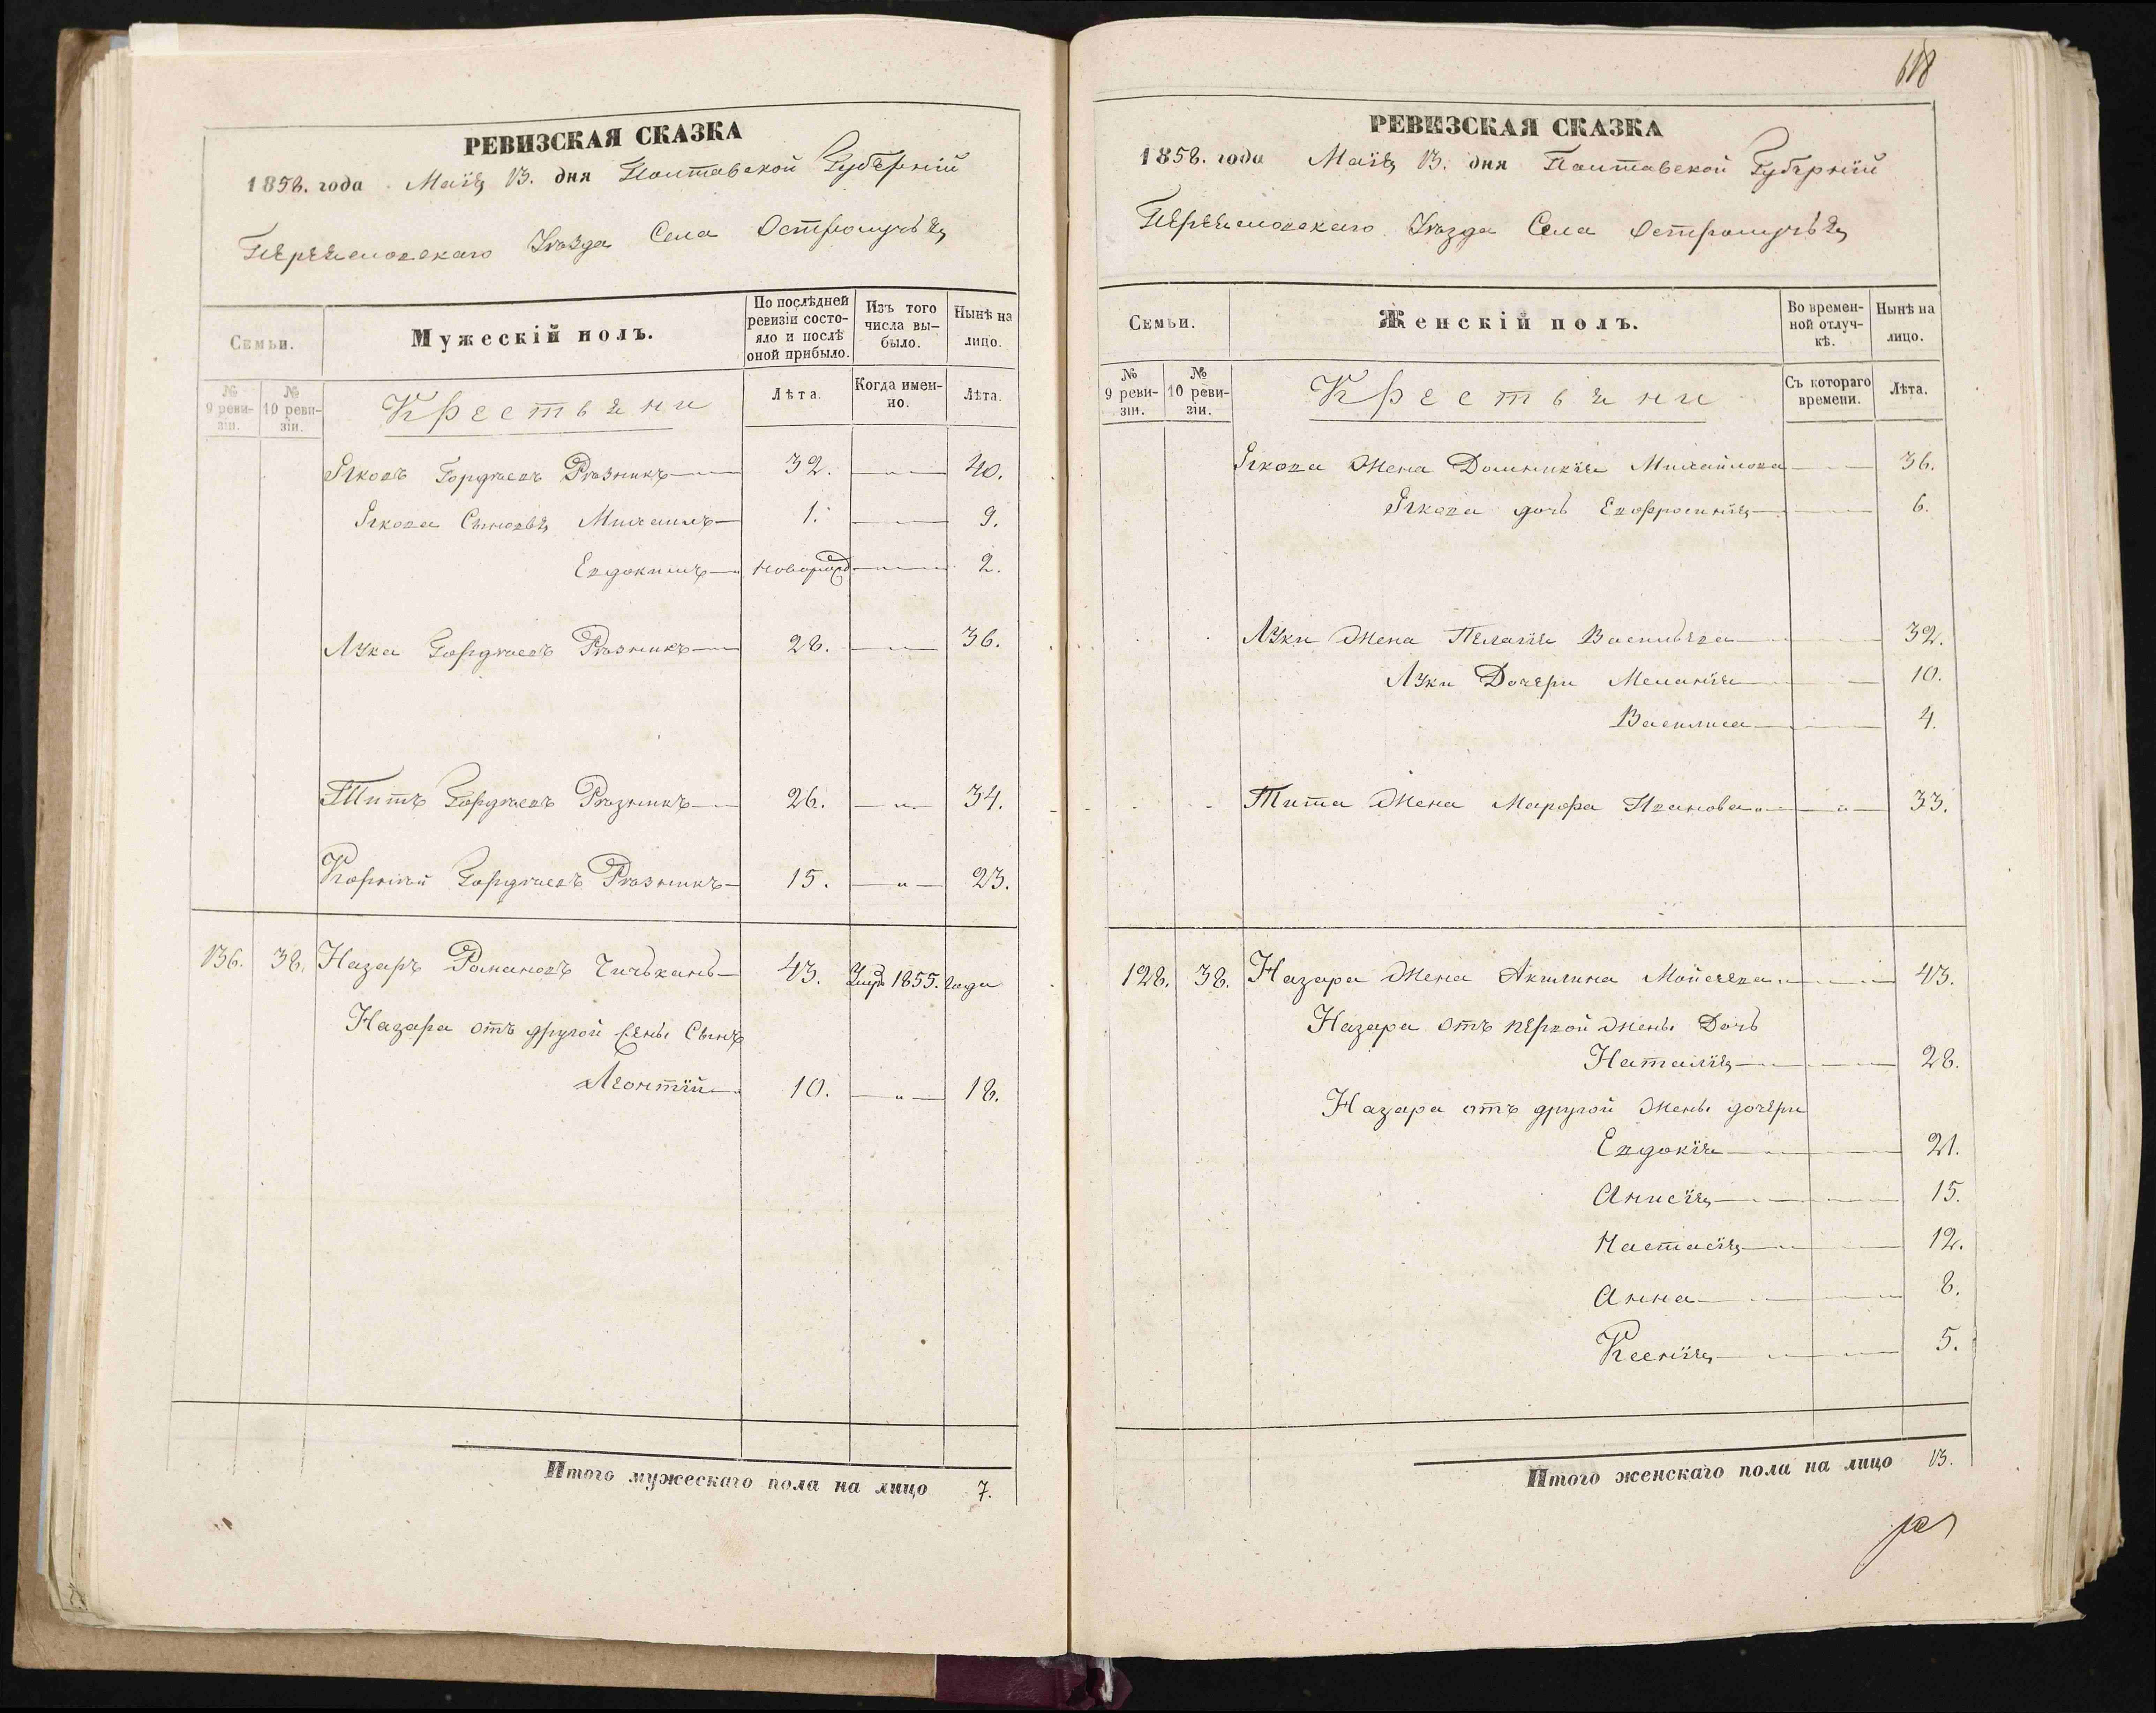 РЕВИЗСКАЯ СКАЗКА
1858. года Маія 13. дня Полтавской Губерніи
Переяславскаго Уѣзда Села Остролучья
Семьи.
Мужескій полъ.
По послѣдней ревизіи состояло и послѣ оной прибыло.
Изъ того числа выбыло.
Нынѣ на лицо.
№ 9 ревизіи.
№ 10 ревизіи.
Крестьяни
Лѣта.
Когда именно.
Лѣта.
Яковъ Гордѣевъ Рѣзникъ 32. 40.
Якова Сыновья Михаилъ 1. 9.
Евдокимъ новорожд 2.
Лука Гордѣевъ Рѣзникъ 28. 36.
Титъ Гордѣевъ Рѣзникъ 26. 34.
Корнѣй Гордѣевъ Рѣзникъ 15. 23.
136. 38. Назаръ Романовъ Чичъканъ 43. Умр. 1855. года
Назара отъ другой жены Сынъ
Леонтій 10. 18.
Итого мужескаго пола на лицо 7.
618
РЕВИЗСКАЯ СКАЗКА
1858. года Маія 13. дня Полтавской Губерніи
Переяславскаго Уѣзда Села Остролучья
Семьи.
Женскій полъ.
Во временной отлучкѣ.
Нынѣ на лицо.
№ 9 ревизіи.
№ 10 ревизіи.
Крестьяни
Съ котораго времени.
Лѣта.
Якова Жена Домникія Михайлова 36.
Якова дочь Евфросинія 6.
Луки Жена Пелагія Васильева 32.
Луки Дочери Меланія 10.
Василиса 4.
Тита Жена Марфа Иванова 33.
128. 38. Назара Жена Акилина Мойсеева 43.
Назара Отъ первой жены Дочь
Наталія 28.
Назара отъ другой жены дочери
Евдокія 21.
Анисія 15.
Настасія 12.
Анна 8.
Ксенія 5.
Итого женскаго пола на лицо 13.